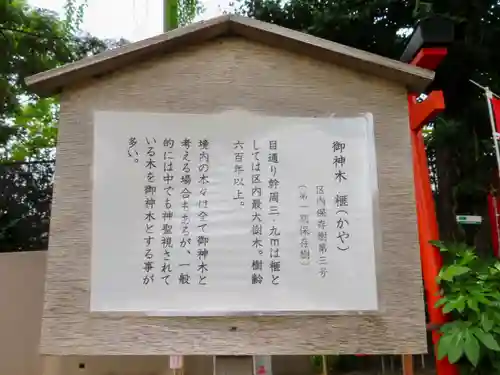 御神木　榧（かや）
区内保存樹第三号
（第一期保存樹）
目通り幹周三・九ｍは榧と
しては区内最大樹木。樹齢
六百年以上。
境内の木々は全て御神木と
考える場合もあるが、一般
的には中でも神聖視されて
いる木を御神木とする事が
多い。